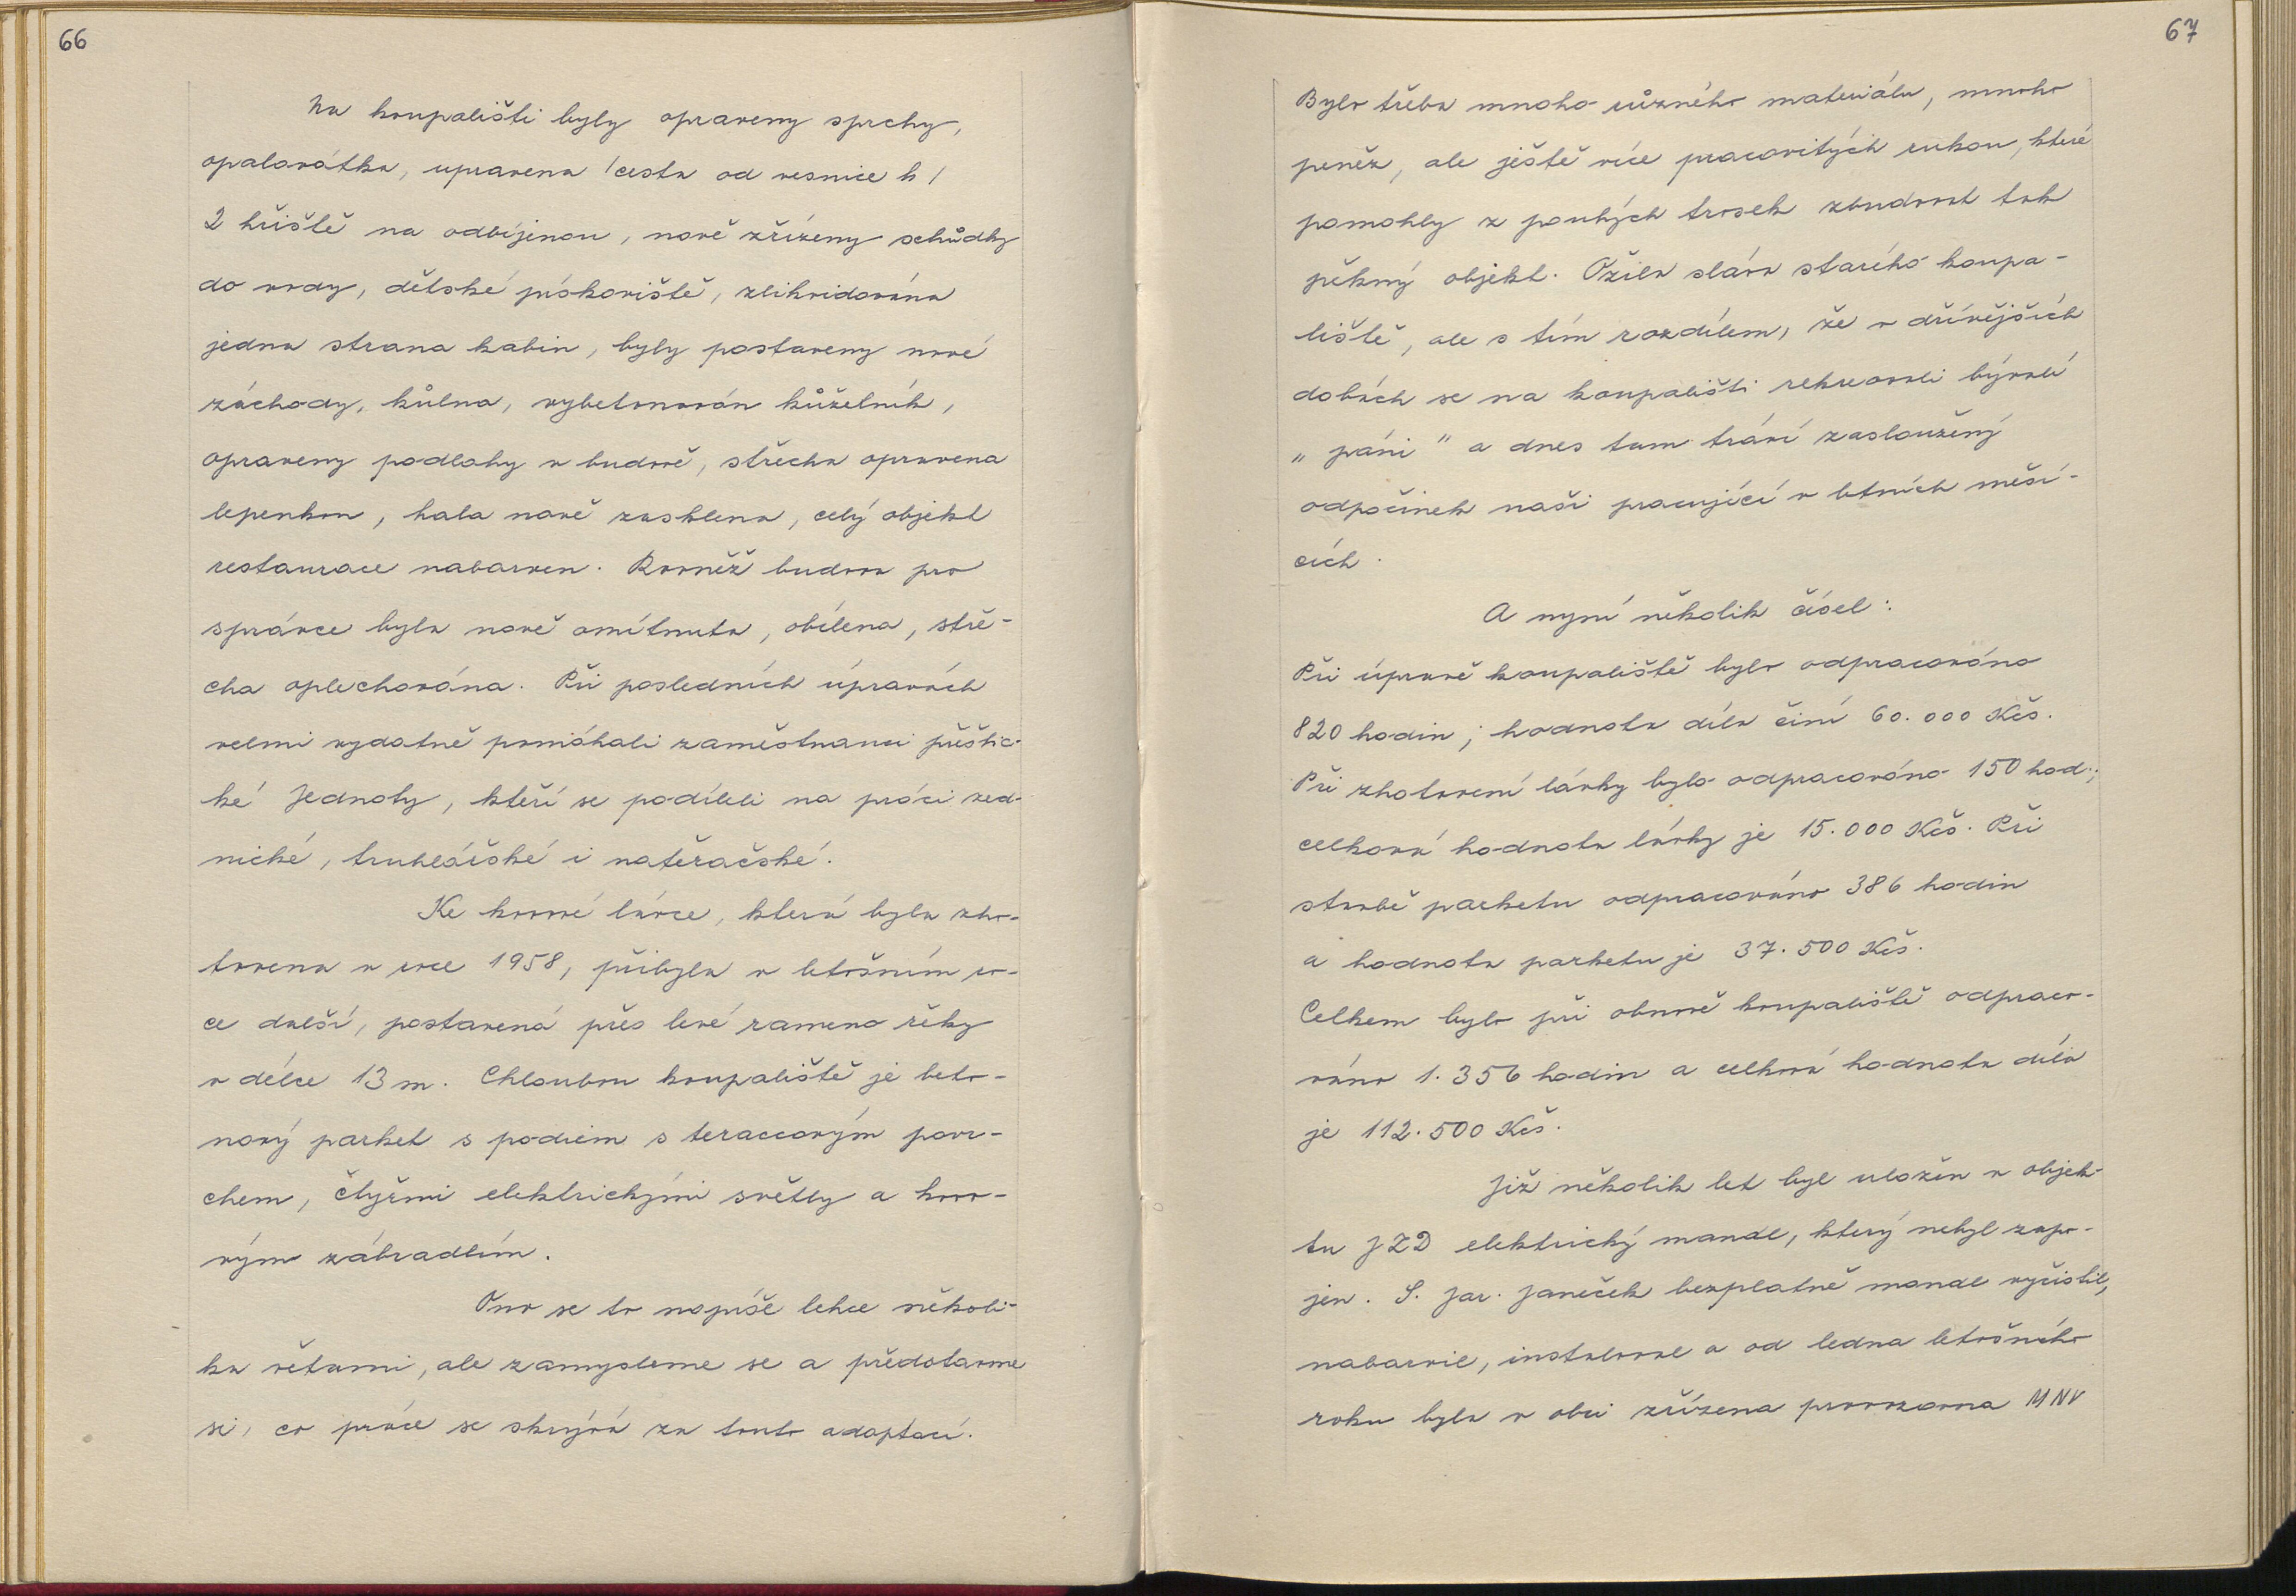 66
Na koupališti byly opraveny sprchy,
opalovátka, upravena /cesta od vesnice k/
2 hřiště na odbíjenou, nově zřízeny schůdky
do vody, dětské pískoviště, zlikvidována
jedna strana kabin, byly postaveny nové
záchody, kůlna, vybetonován kůželník,
opraveny podlahy v budově, střecha opravena
lepenkou, hala nově zasklena, celý objekt
restaurace nabarven. Rovněž budova pro
správce byla nově omítnuta, obílena, stře-
cha oplechována. Při posledních úpravách
velmi vydatně pomáhali zaměstnanci přeštic-
ké Jednoty, kteří se podíleli na práci zed-
nické, truhlářské i natěračské.
Ke kovové lávce, která byla zho-
tovena v roce 1958, přibyla v letošním ro-
ce další, postavená přes levé rameno řeky
v délce 13 m. Chloubou koupaliště je beto-
nový parket s podiem s teraccovým povr-
chem, čtyřmi elektrickými světly a kovo-
vým zábradlím.
Ono se to napíše lehce několi-
ka větami, ale zamysleme se a představme
si, co práce se skrývá za touto adaptací.
67
Bylo třeba mnoho různého materiálu, mnoho
peněz, ale ještě více pracovitých rukou, které
pomohly z pouhých trosek zbudovat tak
pěkný objekt. Ožila sláva starého koupa-
liště, ale s tím rozdílem, že v dřívějších
dobách se na koupališti rekreovali bývalí
„ páni " a dnes tam tráví zasloužený
odpočinek naši pracující v letních měsí-
cích.
A nyní několik čísel:
Při úpravě koupaliště bylo odpracováno
820 hodin; hodnota díla činí 60.000 Kčs.
Při zhotovení lávky bylo odpracováno 150 hod.;
celková hodnota lávky je 15.000 Kčs. Při
stavbě parketu odpracováno 386 hodin
a hodnota parketu je 37.500 Kčs.
Celkem bylo při obnově koupaliště odpraco-
váno 1.356 hodin a celková hodnota díla
je 112.500 Kčs.
Již několik let byl uložen v objek-
tu JZD elektrický mandl, který nebyl zapo-
jen. S. Jar. Janeček bezplatně mandl vyčistil,
nabarvil, instaloval a od ledna letošního
roku byla v obci zřízena provozovna MNV